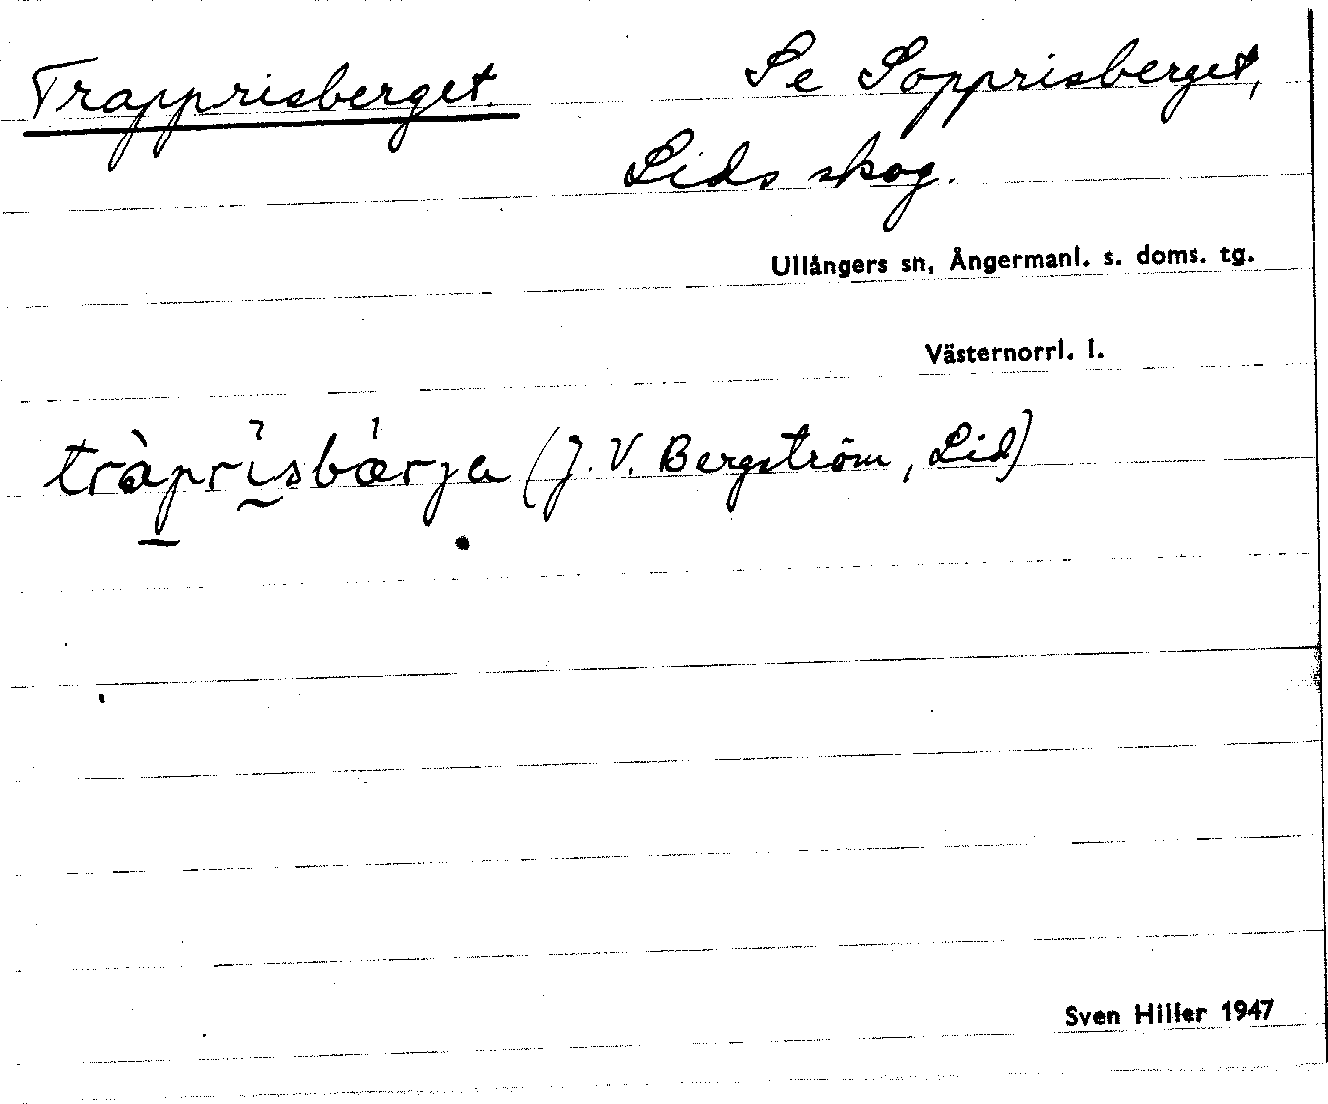 Trapprisberget. Se Sopprisberget,
Lids skog.
Ullångers sn, Ångermanl. s. doms. tg.
Västernorrl. l.
tràprisbærja (J. V. Bergström, Lid)
Sven Hiller 1947